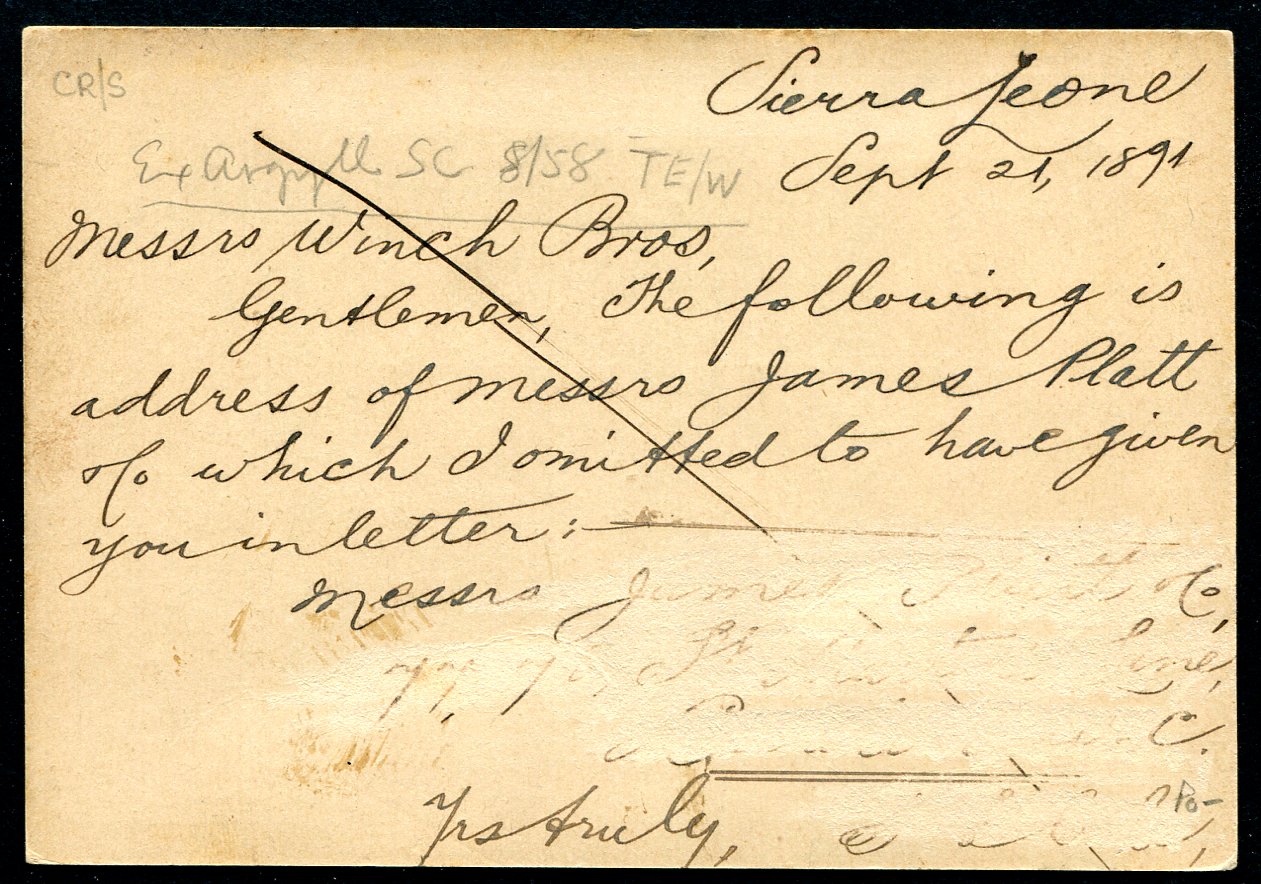 CR/S
Sierra Leone
Ex Argyll SC 8/58 TE/W
Sept 21, 1891
Messrs Winch Bros,
Gentlemen, The following is
address of Messrs James Platt
& Co which I omitted to have given
you in letter:—
Messrs James & Co,
77, 78, St Lane,
C.
Yrs truly,